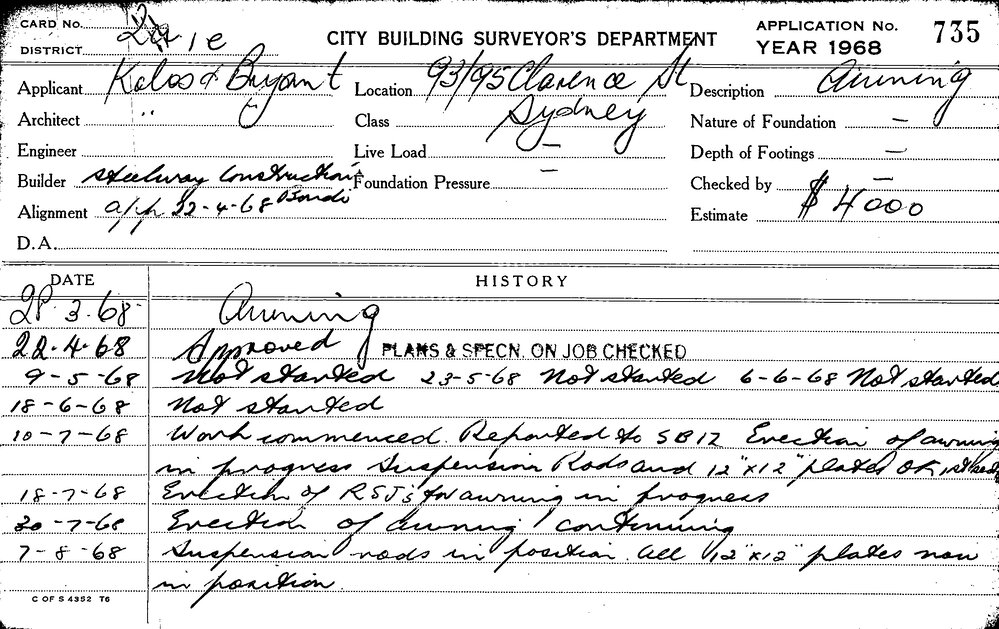 CARD No.
DISTRICT 1e
CITY BUILDING SURVEYOR'S DEPARTMENT
APPLICATION No. 735
YEAR 1968
Applicant Kolos & Bryant Location 93/95 Clarence St Description Awning
Architect " Class Sydney Nature of Foundation —
Engineer Live Load — Depth of Footings —
Builder Steelway Constructions Bondi Foundation Pressure — Checked by —
Alignment app 22-4-68 Estimate $4000
D.A.
DATE HISTORY
28.3.68 Awning
22.4.68 Approved PLANS & SPECN. ON JOB CHECKED
9-5-68 Not started 23-5-68 Not started 6-6-68 Not started
18-6-68 Not started
10-7-68 Work commenced. Reported to SB12 Erection of awning
in progress Suspension Rods and 12"x12" plates OK
18-7-68 Erection of RSJ's for awning in progress
30-7-68 Erection of awning continuing
7-8-68 Suspension rods in position. All 12"x12" plates now
in position.
C OF S 4352 T6